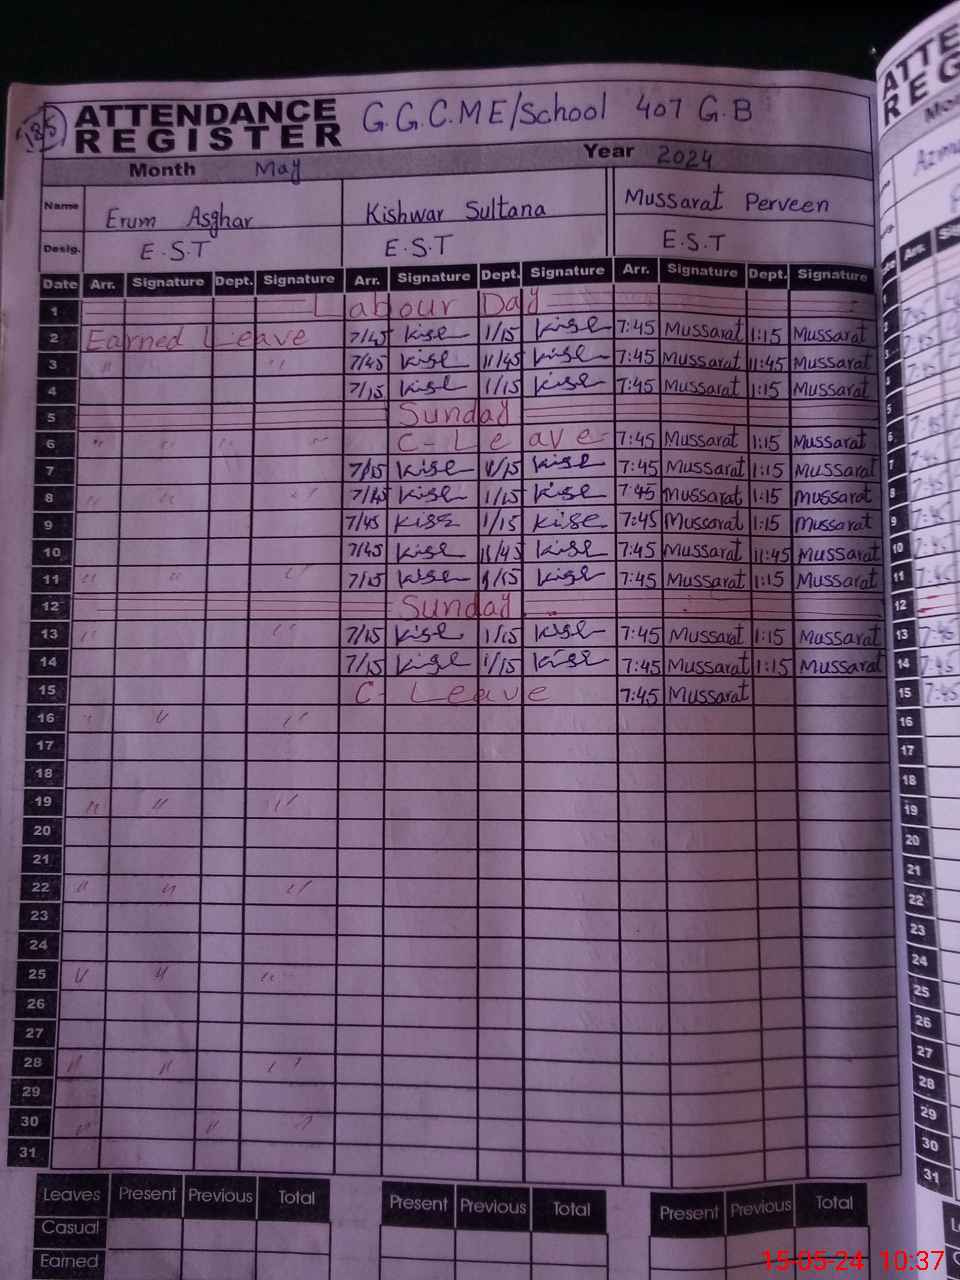 185 ATTENDANCE REGISTER G.G.C.ME/School 407 G.B
Month May Year 2024
Name Erum Asghar Kishwar Sultana Mussarat Perveen
Desig. E.S.T E.S.T E.S.T
Date Arr. Signature Dept. Signature Arr. Signature Dept. Signature Arr. Signature Dept. Signature
1 Labour Day
2 Earned Leave 7/45 Kise 1/15 Kise 7:45 Mussarat 1:15 Mussarat
3 " " 7/45 Kise 11/45 Kise 7:45 Mussarat 11:45 Mussarat
4 7/15 Kise 1/15 Kise 7:45 Mussarat 1:15 Mussarat
5 Sunday
6 " " " " C-Leave 7:45 Mussarat 1:15 Mussarat
7 Kise 1/15 Kise 7:45 Mussarat 1:15 Mussarat
8 " " " 7/45 Kise 1/15 Kise 7:45 Mussarat 1:15 Mussarat
9 7/45 Kise 1/15 Kise 7:45 Mussarat 1:15 Mussarat
10 7/45 Kise 11/45 Kise 7:45 Mussarat 11:45 Mussarat
11 " " " Kise 1/15 Kise 7:45 Mussarat 1:15 Mussarat
12 Sunday
13 " " Kise 1/15 Kise 7:45 Mussarat 1:15 Mussarat
14 7/15 Kise 1/15 Kise 7:45 Mussarat 1:15 Mussarat
15 C-Leave 7:45 Mussarat
16 " " "
17
18
19 " " "
20
21
22 " " "
23
24
25 " " "
26
27
28 " " "
29
30 " " "
31
Leaves Present Previous Total Present Previous Total Present Previous Total
Casual
Earned
15-05-24 10:37